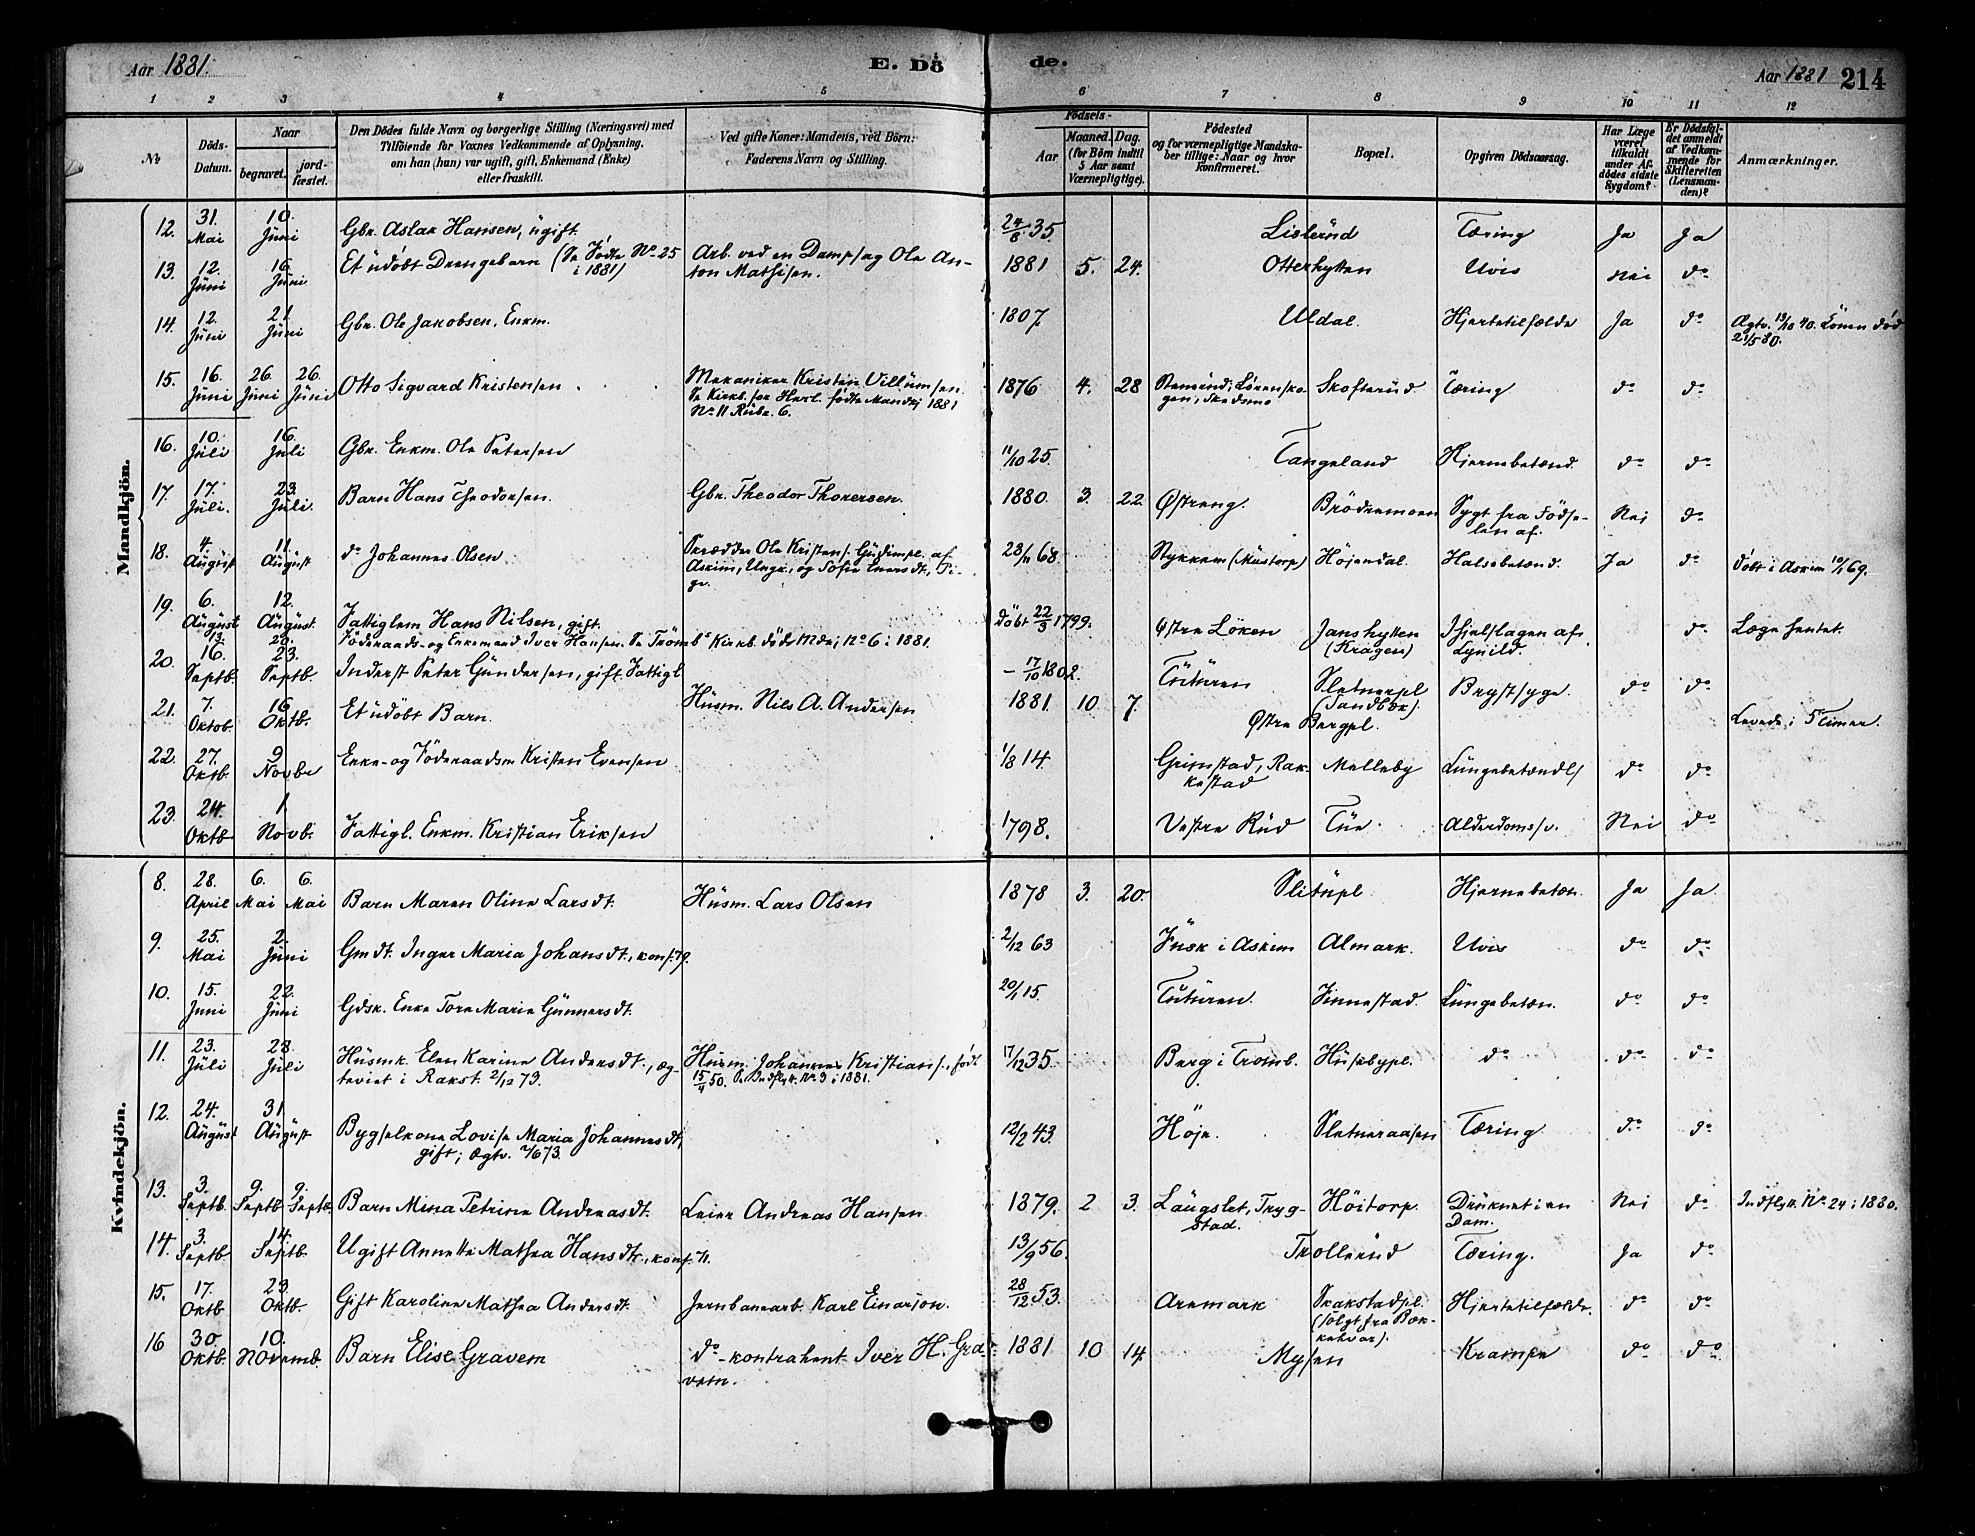 Aar 1881. E. Dö de. Aar 1881 214
1 2 3 4 5 6 7 8 9 10 11 12
No
Döds-Datum.
Naar
begravet.
jord-fæstet.
Den Dödes fulde Navn og borgerlige Stilling (Næringsvei) med
Tilföiende for Voxnes Vedkommende af Oplysning,
om han (han) var ugift, gift, Enkemand (Enke)
eller fraskilt.
Ved gifte Koner: Mandens, ved Börn:
Faderens Navn og Stilling.
Födsels-
Aar
Maaned. Dag.
(for Börn indtil
5 Aar samt
Værnepligtige).
Födested
og for værnepligtige Mandska-
ber tillige: Naar og hvor
konfirmeret.
Bopæl.
Opgiven Dödsaarsag.
Har Læge
været
tilkaldt
under Af-
dödes sidste
Sygdom?
Er Dödsfal-
det anmeldt
af Vedkom-
mende for
Skifteretten
(Lensman-
den)?
Anmærkninger.
Mandkjön.
12. 31. Mai 10. Juni Gbr. Aslak Hansen, ugift. 24/8 35. Lislerud Tæring Ja Ja
13. 12. Juni 16. Juni Et udöbt Drengebarn (Se Födte No 25 i 1881) Arb. ved en Dampsag Ole An-
ton Mathisen. 1881 5. 24. Otterhytten Uvis Nei do
14. 12. Juni 21 Juni Gbr. Ole Jakobsen, Enkm. 1807. Uldal. Hjertetilfælde Ja do Ægtv. 13/10 40. Konen död
21/5 80.
15. 16. Juni 26. Juni 26. Juni Otto Sigvard Kristensen. Mekaniker Kristen Villumsen.
Se Kirkb. for Herl. födte Mandkj 1881
No 11 Rubr. 6. 1876 4. 28 Lörensko-
gen, Skedsmo Skofterud Tæring do do
16. 10. Juli 16. Juli Gbr. Enkm. Ole Petersen 11/10 25. Tangeland Hjernebetænd. do do
17. 17. Juli. 23. Juli. Barn Hans Theodorsen. Gbr. Theodor Thoresen. 1880. 3. 22. Östreng. Brödremoen Sygt fra Födse-
len af. Nei do
18. 4. August 11. August do Johannes Olsen. Skrædder Ole Kristens. af
Askim, Ungk., og Sofie Enersdt., Pi-
ge. 23/11 68. Stykkem (Mustorp) Höjendal. Halsebetænd. Ja do döbt i Askim 10/1 69.
19. 6. August 12. August. Fattiglem Hans Nilsen, gift. Döbt 22/3 1799. Östre Löken Janshytten (Kragen) Ihjelslagen af
Lynild. do Læge hentet.
13. 20. Föderaads- og Enkemand Iver Hansen. Se Trömb's Kirkb. döde Mdkj No 6 i 1881.
20. 16. Septb. 23. Septb. Inderst Peter Gundersen, gift. Fattigl – 17/10 1802. Tuturen Sletnerpl (Sandbæk). Brystsyge. do do
21. 7. Oktob. 16 Oktb. Et udöbt Barn. Husm. Nils A. Andersen 1881. 10 7. Östre Bergpl. Levede i 5 Timer.
22. 27. Oktb. 9 Novbr Enke- og Föderaadsm Kristen Evensen 1/8 14. Grimstad, Rak-
kestad Melleby Lungebetændls do do
23. 24. Oktb 1 Novb. Fattigl. Enkm. Kristian Eriksen 1798. Vestre Rud Tue. Alderdomssv. Nei do
Kvindekjön.
8. 28. April 6. Mai 6. Mai Barn Maren Oline Larsdt. Husm. Lars Olsen 1878 3. 20. Slitupl. Hjernebetæn. Ja Ja
9. 25. Mai 2. Juni Gmdt. Inger Maria Johansdt., konf. 79. 2/12 63 Fusk i Askim Almark. Uvis do do
10. 15. Juni 22. Juni Gdsk. Enke Tore Marie Gunnersdt. 20/1 15. Tuturen. Finnestad. Lungebetæn. do do
11. 23. Juli 28. Juli Husmk. Elen Karine Andersdt., æg-
teviet i Rakst. 2/12 73. Husm. Johannes Kristians., födt
15/4 50. Se Indflytt. No 3 i 1881. 17/12 35 Berg i Tromb. Husebypl. do do do
12. 24. August 31 August Bygselkone Lovise Maria Johannesdt.
gift; Ægtv. 73. 12/2 43. Höje. Sletneraasen Tæring do do
13. 3. Septb. 9. Septb 9. Septb. Barn Mina Petrine Andreasdt. Leier Andreas Hansen. 1879. 2 3. Laugslet, Tryg-
stad. Höitorp. Druknet i en
Dam. Nei do Indflytt. No 24 i 1880.
14. 3. Septb. 14. Septb. Ugift Annette Mathea Hansdtr., konf. 71. 13/9 56. Trollerud Tæring. Ja do
15. 17. Oktb. 23. Oktb. Gift Karoline Mathea Andersdt. Jernbanearb. Karl Einarson. 28/12 53. Aremark Skakstadpl.
(fölgt fra Bæk-
kehvar). Hjertetilfælde. do do
16 30. Oktb. 10. Novemb. Barn Elise Gravem do-kontrahent Iver H. Gra-
vem. 1881 10 14. Mysen Krampe do do